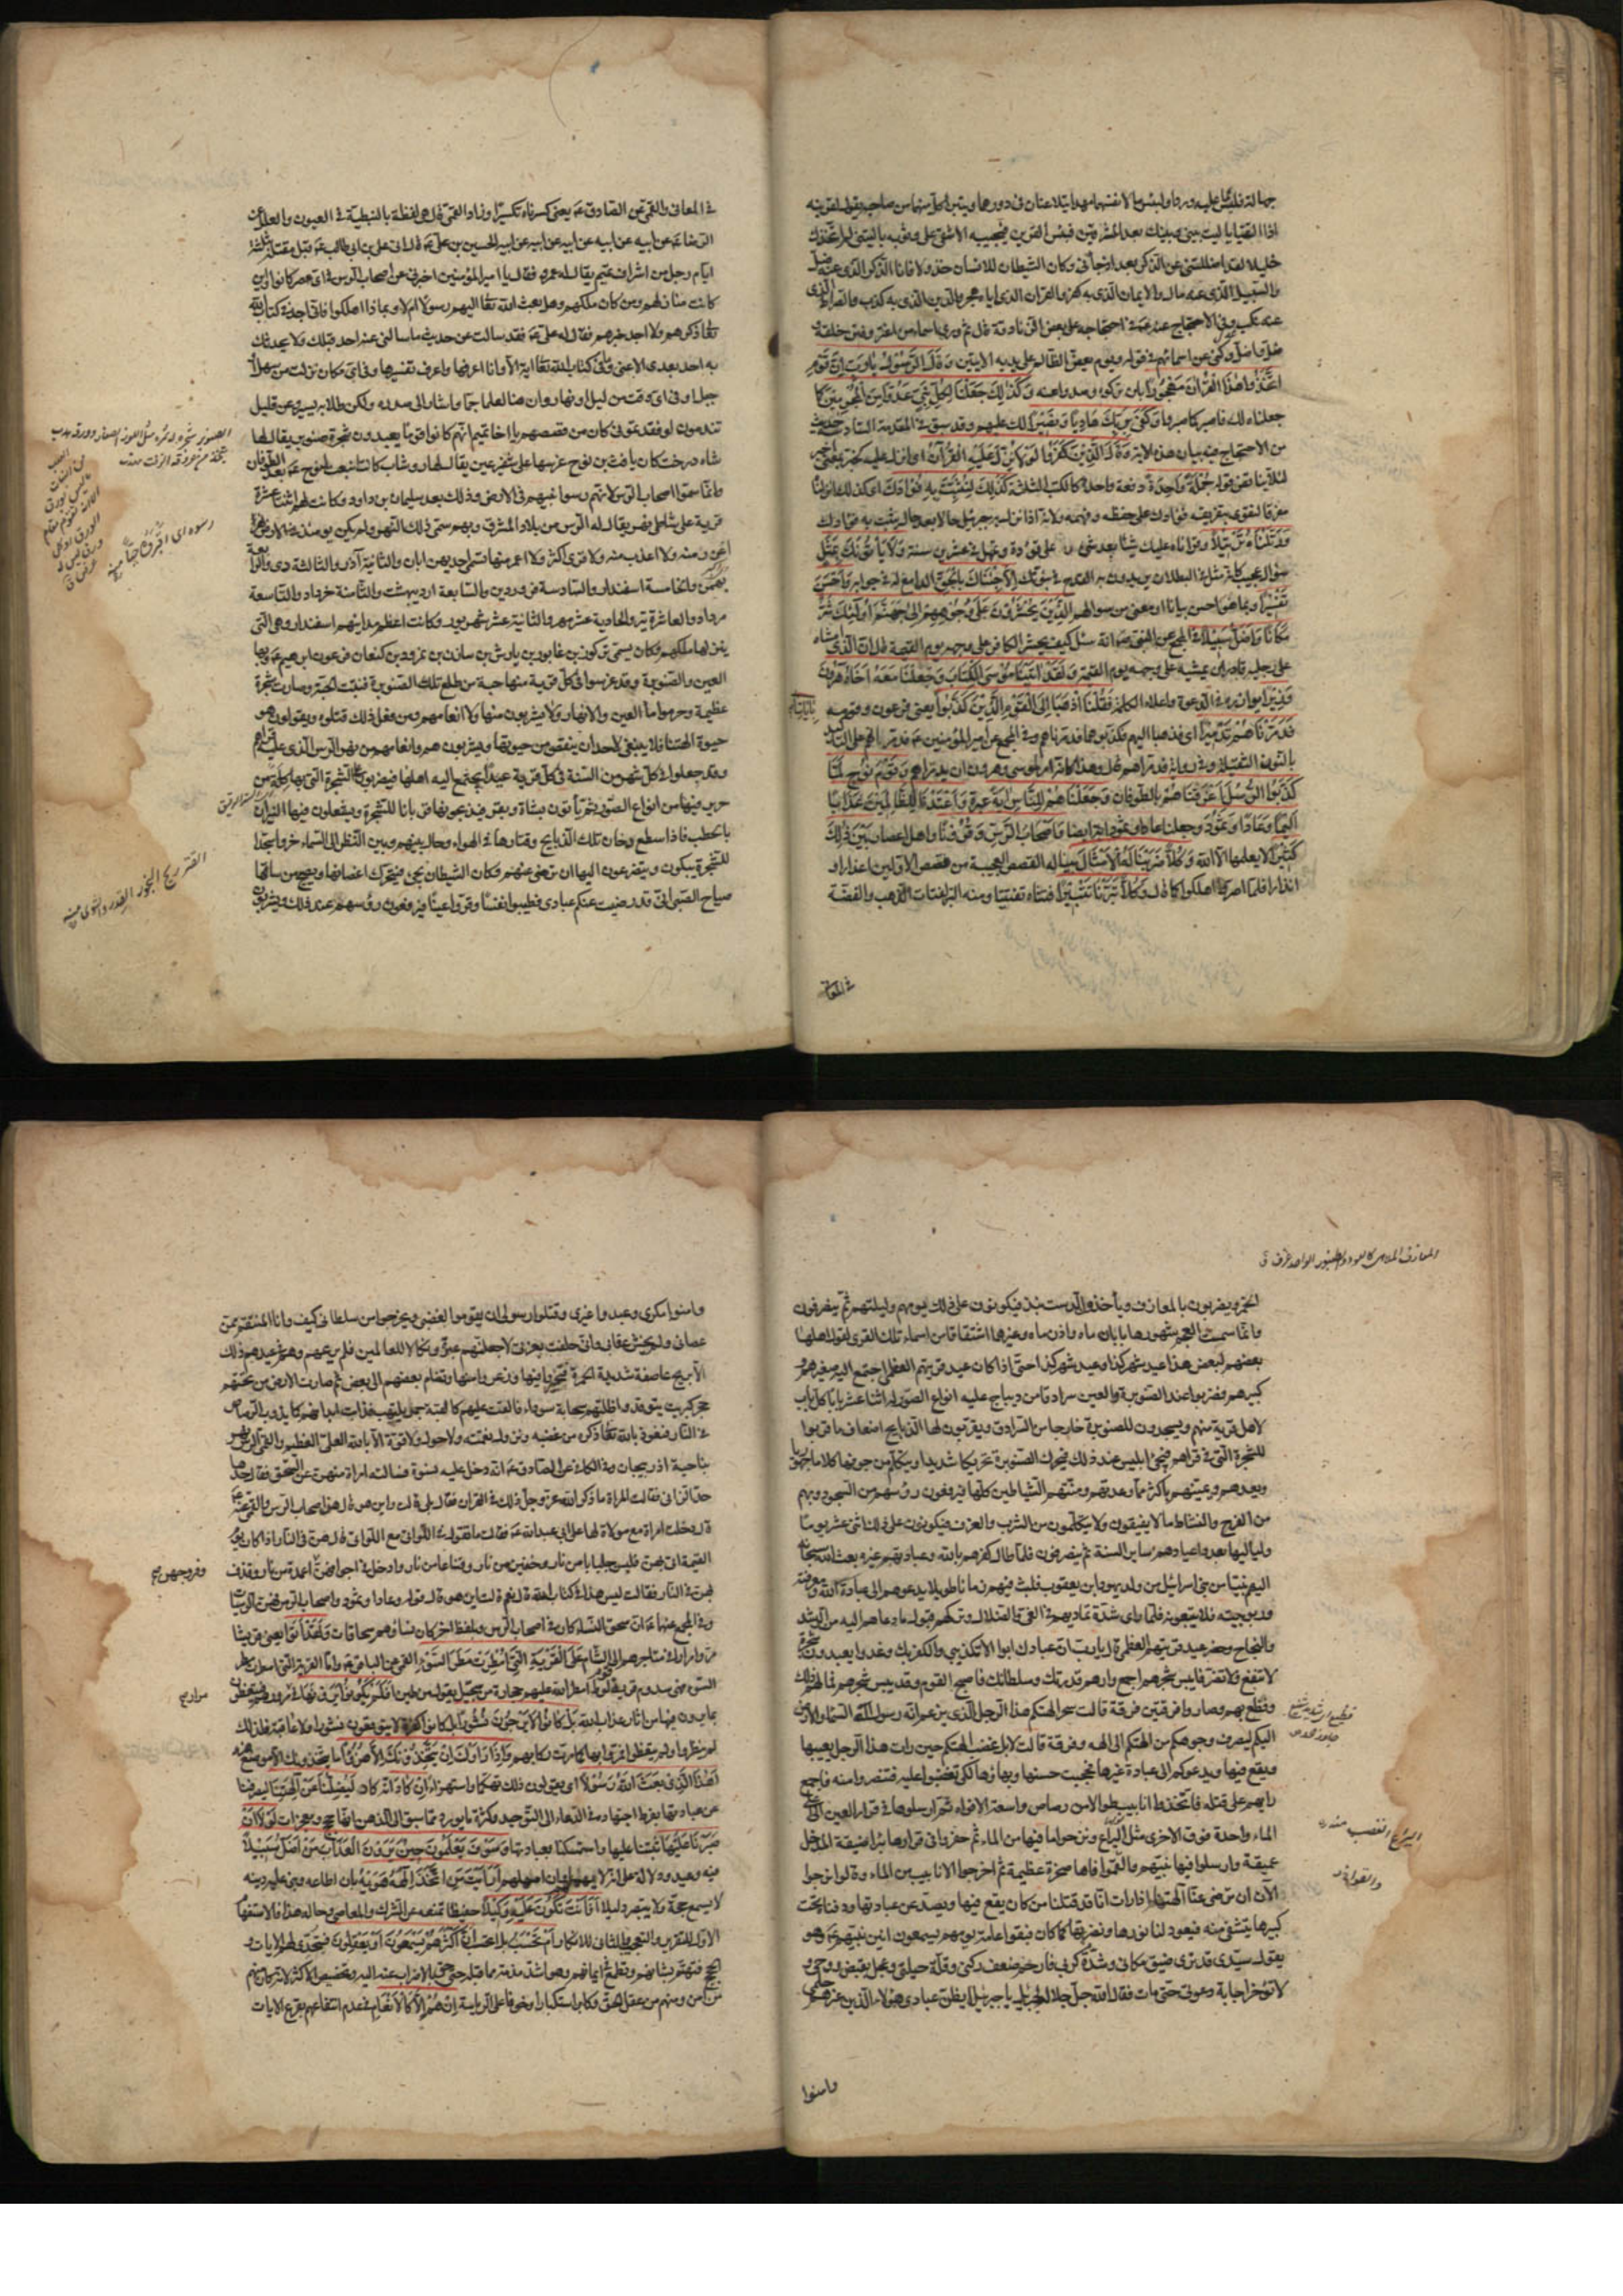 جهالة فليتما عليه وردا ولبئس ما لانفسهما مهدا يتلاعنان في دورهما ويتبرأ كل منهما من صاحبه يقول لقرينه
اذا التقيا يا ليت بيني وبينك بعد المشرقين فبئس القرين فيجيبه الاشقى على وثوبه يا ليتني لم اتخذك
خليلا لقد اضللتني عن الذكر بعد اذ جاءني وكان الشيطان للانسان خذولا فانا الذكر الذي عنه ضل
والسبيل الذي عنه مال والايمان الذي به كفر والقران الذي اياه هجر والدين الذي به كذب والصراط الذي
عنه نكب وفي الاحتجاج عنه ع في احتجاجه على بعض الزنادقة قال ثم ورى اسماء من اغتر وفتن خلقه و
ضل واضل وكنى عن اسمائهم في قوله ويوم يعض الظالم على يديه الايتين وَقَالَ الرَّسُولُ يا رَبِّ إِنَّ قَوْمِي
اتَّخَذُوا هذَا الْقُرْآنَ مَهْجُوراً بان تركوه وصدوا عنه وَكَذلِكَ جَعَلْنا لِكُلِّ نَبِيٍّ عَدُوًّا مِنَ الْمُجْرِمِينَ كما
جعلناه لك فاصبر كما صبروا وَكَفى بِرَبِّكَ هادِياً وَنَصِيراً لك عليهم وقد سبق في المقدمة السادسة حديث
من الاحتجاج فيه بيان هذه الاية وَقالَ الَّذِينَ كَفَرُوا لَوْ لا نُزِّلَ عَلَيْهِ الْقُرْآنُ اي انزل عليه كخبر بمعنى اخبر
لئلا يناقض قوله جُمْلَةً واحِدَةً دفعة واحدة كالكتب الثلثة كَذلِكَ لِنُثَبِّتَ بِهِ فُؤادَكَ اي كذلك انزلناه
مفرقا لنقوى بتفريقه فؤادك على حفظه وفهمه ولانه اذا نزل به جبرئيل حالا بعد حال يثبت به فؤادك
وَرَتَّلْناهُ تَرْتِيلاً وقراناه عليك شيئا بعد شيء على تؤدة وتمهل في عشرين سنة وَلا يَأْتُونَكَ بِمَثَلٍ
سؤال عجيب كانه مثل في البطلان يريدون به القدح في نبوتك إِلاَّ جِئْناكَ بِالْحَقِّ الدامغ له في جوابه وَأَحْسَنَ
تَفْسِيراً وبما هو احسن بيانا او معنى من سؤالهم الَّذِينَ يُحْشَرُونَ عَلى وُجُوهِهِمْ إِلى جَهَنَّمَ أُوْلئِكَ شَرٌّ
مَكاناً وَأَضَلُّ سَبِيلاً في المجمع عن النبي ص انه سئل كيف يحشر الكافر على وجهه يوم القيمة قال ان الذي امشاه
على رجليه قادر ان يمشيه على وجهه يوم القيمة وَلَقَدْ آتَيْنا مُوسَى الْكِتابَ وَجَعَلْنا مَعَهُ أَخاهُ هارُونَ
وَزِيراً يوازره في الدعوة واعلاء الكلمة فَقُلْنَا اذْهَبا إِلَى الْقَوْمِ الَّذِينَ كَذَّبُوا يعني فرعون وقومه
فَدَمَّرْناهُمْ تَدْمِيراً اي فذهبا اليهم فكذبوهما فدمرناهم وفي المجمع عن امير المؤمنين ع فدمرانهم على التاكيد
بالنون الثقيلة وفي رواية فدمراهم قال وهذا كانه امر لموسى وهرون ان يدمراهم وَقَوْمَ نُوحٍ لَمَّا
كَذَّبُوا الرُّسُلَ أَغْرَقْناهُمْ بالطوفان وَجَعَلْناهُمْ لِلنَّاسِ آيَةً عبرة وَأَعْتَدْنا لِلظَّالِمِينَ عَذاباً
أَلِيماً وَعاداً وَثَمُودَ وجعلنا عادا وثمود اية ايضا وَأَصْحابَ الرَّسِّ وَقُرُوناً واهل اعصار بَيْنَ ذلِكَ
كَثِيراً لا يعلمها الا الله وَكُلاًّ ضَرَبْنا لَهُ الْأَمْثالَ بينا له القصص العجيبة من قصص الاولين اعذارا و
انذارا فلما اصروا اهلكوا كما قال وَكُلاًّ تَبَّرْنا تَتْبِيراً فتتناه تفتيتا ومنه التبر لفتات الذهب والفضة
في المعاني
في المعاني والقمي عن الصادق ع يعني كسرناه تكسيرا وزاد القمي قال هي لفظة بالنبطية في العيون والعلل عن
الرضا ع عن ابيه عن ابيه عن ابيه عن ابيه الحسين بن علي ع قال اتى علي بن ابي طالب ع قبل مقتله بثلثة
ايام رجل من اشراف تميم يقال له عمرو فقال يا امير المؤمنين اخبرني عن اصحاب الرس في اي عصر كانوا واين
كانت منازلهم ومن كان ملكهم وهل بعث الله تعالى اليهم رسولا ام لا وبماذا اهلكوا فاني اجد في كتاب الله
تعالى ذكرهم ولا اجد خبرهم فقال له علي ع لقد سالت عن حديث ما سالني عنه احد قبلك ولا يحدثك
به احد بعدي الا عني وما في كتاب الله تعالى اية الا وانا اعرفها واعرف تفسيرها وفي اي مكان نزلت من سهل او
جبل وفي اي وقت من ليل او نهار وان ههنا لعلما جما واشار الى صدره ولكن طلابه يسير وعن قليل
تندمون لو فقدتموني كان من قصصهم يا اخا تميم انهم كانوا قوما يعبدون شجرة صنوبر يقال لها
شاه درخت كان يافث بن نوح غرسها على شفير عين يقال لها روشاب كانت انبعت لنوح ع بعد الطوفان
وانما سموا اصحاب الرس لانهم رسوا نبيهم في الارض وذلك بعد سليمان بن داود وكانت لهم اثنتا عشرة
قرية على شاطئ نهر يقال له الرس من بلاد المشرق وبهم سمي ذلك النهر ولم يكن يومئذ في الارض نهر
اغزر منه ولا اعذب منه ولا قرى اكثر ولا اعمر منها تسمى احديهن ابان والثانية آذر والثالثة دي والرابعة
بهمن والخامسة اسفندار والسادسة فروردين والسابعة ارديبهشت والثامنة خرداد والتاسعة
مرداد والعاشرة تير والحادية عشر مهر والثانية عشر شهريور وكانت اعظم مداينهم اسفندار وهي التي
ينزلها ملكهم وكان يسمى تركوذ بن غابور بن يارش بن سازن بن نمرود بن كنعان فرعون ابرهيم ع وبها
العين والصنوبرة وقد غرسوا في كل قرية منها حبة من طلع تلك الصنوبرة فنبتت الحبة وصارت شجرة
عظيمة وحرموا ماء العين والانهار ولا يشربون منها ولا انعامهم ومن فعل ذلك قتلوه ويقولون هو
حيوة الهتنا فلا ينبغي لاحد ان ينقص من حيوتها ويشربون هم وانعامهم من نهر الرس الذي عليه قراهم
وقد جعلوا في كل شهر من السنة في كل قرية عيدا يجتمع اليه اهلها فيضربون على الشجرة التي بها كلة من
حرير فيها من انواع الصور ثم ياتون بشاة وبقر فيذبحونها قربانا للشجرة ويشعلون فيها النيران
بالحطب فاذا سطع دخان تلك الذبايح وقتارها في الهواء وحال بينهم وبين النظر الى السماء خروا سجدا
للشجرة يبكون ويتضرعون اليها ان ترضى عنهم فكان الشيطان يجيء فيحرك اغصانها ويصيح من ساقها
صياح الصبي اني قد رضيت عنكم عبادي فطيبوا نفسا وقروا عينا فيرفعون رؤسهم عند ذلك ويشربون
القتار ريح البخور والقدر والشوى منه
المعازف الملاهي كالعود والطنبور الواحد عزف ق
الخمر ويضربون بالمعازف وياخذون الدست بند فيكونون على ذلك يومهم وليلتهم ثم ينصرفون
وانما سميت العجم شهورها بابان ماه واذر ماه وغيرها اشتقاقا من اسماء تلك القرى لقول اهلها
بعضهم لبعض هذا عيد شهر كذا وعيد شهر كذا حتى اذا كان عيد قريتهم العظمى اجتمع اليه صغيرهم و
كبيرهم فضربوا عند الصنوبرة والعين سرادقا من ديباج عليه انواع الصور له اثنا عشر بابا كل باب
لاهل قرية منهم ويسجدون للصنوبرة خارجا من السرادق ويقربون لها الذبايح اضعاف ما قربوا
للشجرة التي في قراهم فيجيء ابليس عند ذلك فيحرك الصنوبرة تحريكا شديدا ويتكلم من جوفها كلاما جهوريا
ويعدهم ويمنيهم باكثر مما وعدتهم ومنتهم الشياطين كلها فيرفعون رؤسهم من السجود وبهم
من الفرح والنشاط ما لا يفيقون ولا يتكلمون من الشرب والعزف فيكونون على ذلك اثني عشر يوما
ولياليها بعدد اعيادهم ساير السنة ثم ينصرفون فلما طال كفرهم بالله وعبادتهم غيره بعث الله سبحانه
اليهم نبيا من بني اسرائيل من ولد يهودا بن يعقوب فلبث فيهم زمانا طويلا يدعوهم الى عبادة الله ومعرفة
ربوبيته فلا يتبعونه فلما راى شدة تماديهم في الغي والضلال وتركهم قبول ما دعاهم اليه من الرشد
والنجاح وحضر عيد قريتهم العظمى قال يا رب ان عبادك ابوا الا تكذيبي والكفر بك وغدوا يعبدون شجرة
لا تنفع ولا تضر فايبس شجرهم اجمع وارهم قدرتك وسلطانك فاصبح القوم وقد يبس شجرهم فهالهم ذلك
وقطع بهم وصاروا فرقتين فرقة قالت سحر الهتكم هذا الرجل الذي يزعم انه رسول اله السماء والارض
اليكم ليصرف وجوهكم عن الهتكم الى الهه وفرقة قالت لا بل غضبت الهتكم حين رات هذا الرجل يعيبها
ويقع فيها ويدعوكم الى عبادة غيرها فحجبت حسنها وبهاءها لكي تغضبوا عليه فتنتصروا منه فاجمع
رايهم على قتله فاتخذوا انابيب طوالا من رصاص واسعة الافواه ثم ارسلوها في قرار العين الى اعلى
الماء واحدة فوق الاخرى مثل اليراع ونزحوا ما فيها من الماء ثم حفروا في قرارها بئرا ضيقة المدخل
عميقة وارسلوا فيها نبيهم والقموا فاها صخرة عظيمة ثم اخرجوا الانابيب من الماء وقالوا نرجوا
الآن ان ترضى عنا آلهتنا اذا رات انا قد قتلنا من كان يقع فيها ويصد عن عبادتها ودفناه تحت
كبيرها يتشفى منه فيعود لنا نورها ونضرتها كما كان فبقوا عامة يومهم يسمعون انين نبيهم ع وهو
يقول سيدي قد ترى ضيق مكاني وشدة كربي فارحم ضعف ركني وقلة حيلتي وعجل بقبض روحي و
لا تؤخر اجابة دعوتي حتى مات فقال الله جل جلاله لجبرئيل يا جبرئيل ايظن عبادي هؤلاء الذين غرهم حلمي
وامنوا
وامنوا مكري وعبدوا غيري وقتلوا رسولي ان يقوموا لغضبي ويخرجوا من سلطاني كيف وانا المنتقم ممن
عصاني ولم يخش عقابي واني حلفت بعزتي لاجعلنهم عبرة ونكالا للعالمين فلم يرعهم وهم في عيدهم ذلك
الا بريح عاصفة شديدة الحمرة فتحيروا فيها وذعروا منها وتضام بعضهم الى بعض ثم صارت الارض من تحتهم
حجر كبريت يتوقد واظلتهم سحابة سوداء فالقت عليهم كالقبة جمرا يلتهب فذابت ابدانهم كما يذوب الرصاص
في النار فنعوذ بالله تعالى ذكره من غضبه ونزول نقمته ولا حول ولا قوة الا بالله العلي العظيم والقمي الرس نهر
بناحية اذربيجان وفي الكافي عن الصادق ع انه دخل عليه نسوة فسالته امراة منهن عن السحق فقال حدها
حد الزاني فقالت المراة ما ذكر الله عز وجل ذلك في القران فقال بلى قالت واين هو قال هن اصحاب الرس والقمي عنه ع
قال دخلت امراة مع مولاة لها على ابي عبد الله ع فقالت ما تقول في اللواتي مع اللواتي قال هن في النار اذا كان يوم
القيمة اتي بهن فالبسن جلبابا من نار وخفين من نار وقناعا من نار وادخل في اجوافهن اعمدة من نار وقذف
بهن في النار فقالت ليس هذا في كتاب الله قال نعم قالت اين هو قال قوله وعادا وثمود واصحاب الرس فهن الرسيات
وفي المجمع عنهما ع ان سحق النساء كان في اصحاب الرس وبلفظ اخر كان نساؤهم سحاقات وَلَقَدْ أَتَوْا يعني قريشا
مروا مرارا في متاجرهم الى الشام عَلَى الْقَرْيَةِ الَّتِي أُمْطِرَتْ مَطَرَ السَّوْءِ القمي عن الباقر ع واما القرية التي امطرت مطر
السوء فهي سدوم قرية قوم لوط امطر الله عليهم حجارة من سجيل يقول من طين أَفَلَمْ يَكُونُوا يَرَوْنَها في مرورهم فيتعظون
بما يرون فيها من اثار عذاب الله بَلْ كانُوا لا يَرْجُونَ نُشُوراً بل كانوا كفرة لا يتوقعون نشورا ولا عاقبة فلذلك
لم ينظروا ولم يتعظوا فمروا بها كما مرت ركابهم وَإِذا رَأَوْكَ إِنْ يَتَّخِذُونَكَ إِلاَّ هُزُواً ما يتخذونك الا موضع هزء
أَهذَا الَّذِي بَعَثَ اللَّهُ رَسُولاً اي يقولون ذلك تهكما واستهزاء إِنْ كادَ انه كاد لَيُضِلُّنا عَنْ آلِهَتِنا ليصرفنا
عن عبادتها بفرط اجتهاده في الدعاء الى التوحيد وكثرة ما يورد مما سبق الى الذهن انها حجج ومعجزات لَوْ لا أَنْ
صَبَرْنا عَلَيْها ثبتنا عليها واستمسكنا بعبادتها وَسَوْفَ يَعْلَمُونَ حِينَ يَرَوْنَ الْعَذابَ مَنْ أَضَلُّ سَبِيلاً
فيه وعيد ودلالة على انه لا يهملهم وان امهلهم أَرَأَيْتَ مَنِ اتَّخَذَ إِلهَهُ هَواهُ بان اطاعه وبنى عليه دينه
لا يسمع حجة ولا يتبصر دليلا أَفَأَنْتَ تَكُونُ عَلَيْهِ وَكِيلاً حفيظا تمنعه عن الشرك والمعاصي وحاله هذا فالاستفهام
الاول للتقرير والتعجيب والثاني للانكار أَمْ تَحْسَبُ بل اتحسب أَنَّ أَكْثَرَهُمْ يَسْمَعُونَ أَوْ يَعْقِلُونَ فتجدي لهم الايات و
الحجج فتهتم بشانهم وتطمع في ايمانهم وهو اشد مذمة مما قبله حتى حق بالاضراب عنه اليه وتخصيص الاكثر لانه كان منهم
من آمن ومنهم من عقل الحق وكابر استكبارا وخوفا على الرياسة إِنْ هُمْ إِلاَّ كَالْأَنْعامِ في عدم انتفاعهم بقرع الايات